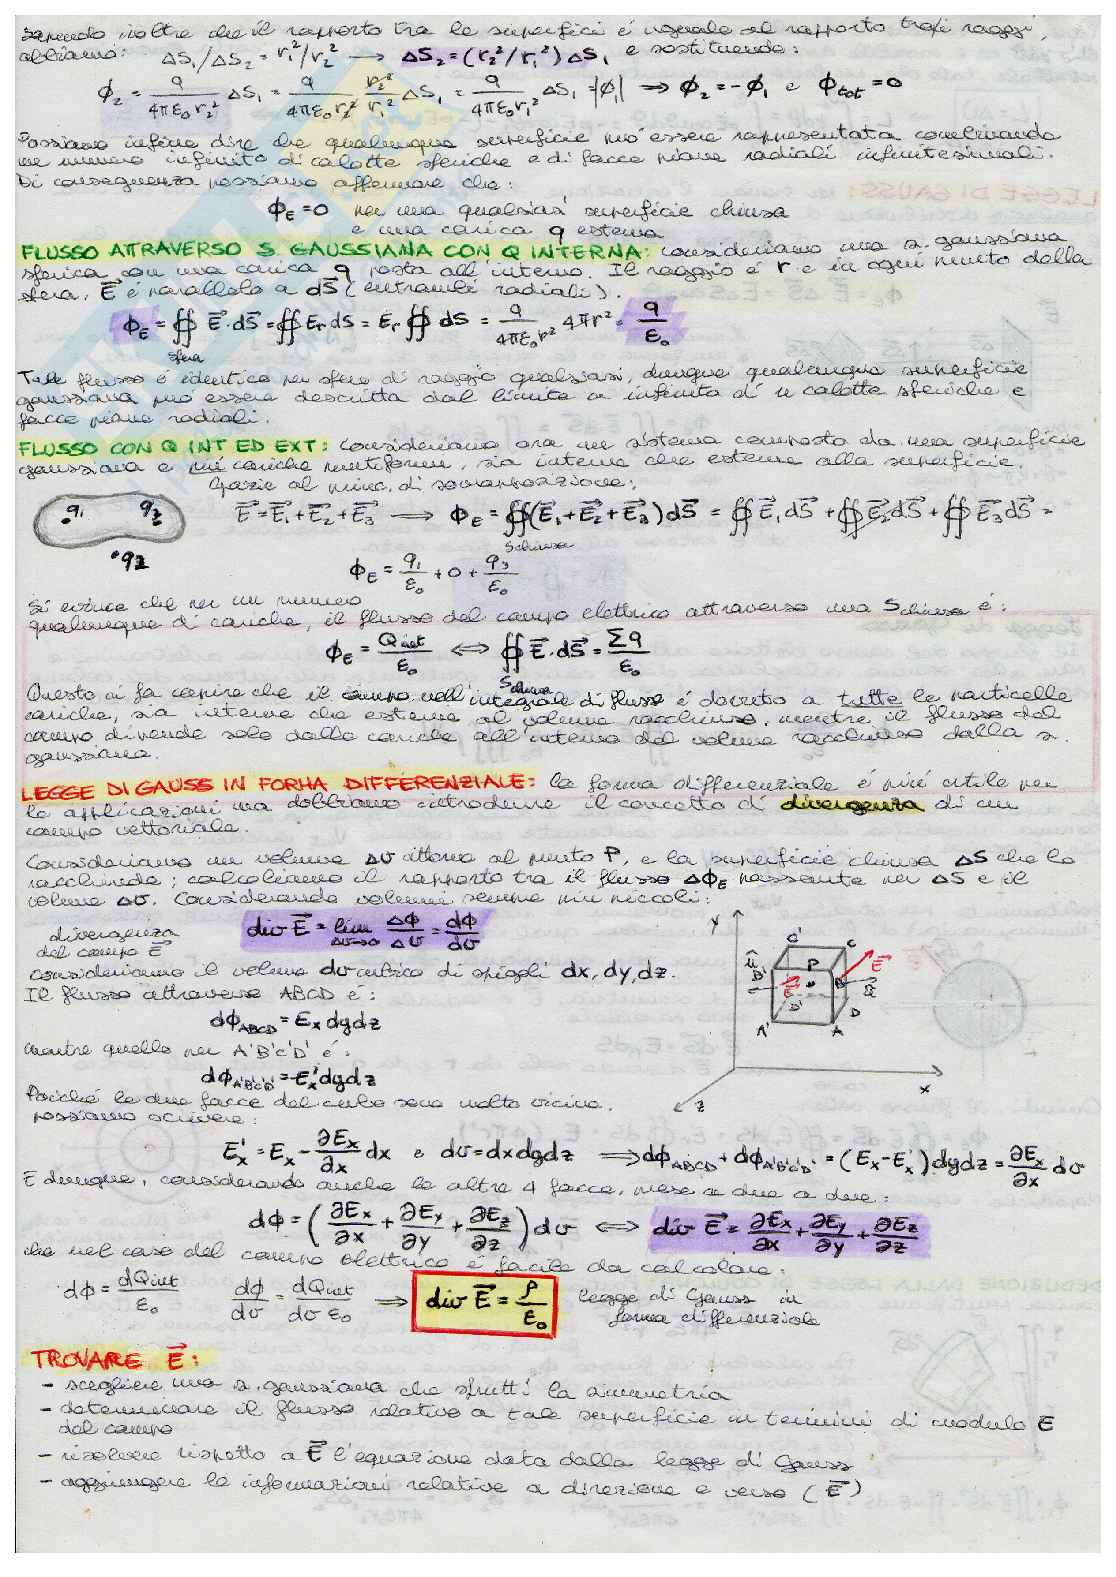 sapendo inoltre che il rapporto tra le superfici é uguale al rapporto tra i raggi,
abbiamo: ΔS₁/ΔS₂ = r₁²/r₂² → ΔS₂=(r₂²/r₁²)ΔS₁ e sostituendo:
ϕ₂ = q/(4πε₀r₂²) ΔS₁ = q/(4πε₀r₂²) r₂²/r₁² ΔS₁ = q/(4πε₀r₁²) ΔS₁ = |ϕ₁| ⇒ ϕ₂ = -ϕ₁ e ϕtot = 0
Possiamo infine dire che qualunque superficie può essere rappresentata combinando
un numero infinito di calotte sferiche e di facce piane radiali infinitesimali.
Di conseguenza possiamo affermare che:
ϕE = 0 per una qualsiasi superficie chiusa
e una carica q esterna
FLUSSO ATTRAVERSO S GAUSSIANA CON Q INTERNA: consideriamo una s. gaussiana
sferica con una carica q posta all'interno. Il raggio é r e in ogni punto della
sfera, E⃗ é parallelo a dS⃗ (entrambi radiali).
ϕE = ∯ E⃗·dS⃗ = ∯ Er dS = Er ∯ dS = q/(4πε₀r²) 4πr² = q/ε₀
sfera
Tale flusso é identico per sfere di raggio qualsiasi, dunque qualunque superficie
gaussiana può essere descritta dal limite a infinito di n calotte sferiche e
facce piane radiali.
FLUSSO CON Q INT ED EXT: consideriamo ora un sistema composto da una superficie
gaussiana e più cariche puntiformi, sia interne che esterne alla superficie.
Grazie al princ. di sovrapposizione:
q₁ q₃
E⃗ = E⃗₁+E⃗₂+E⃗₃ → ϕE = ∯(E⃗₁+E⃗₂+E⃗₃)dS⃗ = ∯E⃗₁dS⃗ + ∯E⃗₂dS⃗ + ∯E⃗₃dS⃗ =
Schiusa
q₂
ϕE = q₁/ε₀ + 0 + q₃/ε₀
Si evince che per un numero
qualunque di cariche, il flusso del campo elettrico attraverso una Schiusa é:
ϕE = Qint/ε₀ ⇔ ∯ E⃗·dS⃗ = Σq/ε₀
Schiusa
Questo ci fa capire che il campo nell'integrale di flusso é dovuto a tutte le particelle
cariche, sia interne che esterne al volume racchiuso, mentre il flusso del
campo dipende solo dalle cariche all'interno del volume racchiuso dalla s.
gaussiana.
LEGGE DI GAUSS IN FORMA DIFFERENZIALE: la forma differenziale é più utile per
le applicazioni ma dobbiamo introdurre il concetto di divergenza di un
campo vettoriale.
Consideriamo un volume Δv attorno al punto P, e la superficie chiusa ΔS che lo
racchiude; calcoliamo il rapporto tra il flusso ΔϕE passante per ΔS e il
volume Δv. Considerando volumi sempre più piccoli:
divergenza
del campo E⃗
div E⃗ = lim Δv→0 Δϕ/Δv = dϕ/dv
consideriamo il volume dv cubico di spigoli dx, dy, dz.
Il flusso attraverso ABCD é:
dϕABCD = Ex dydz
mentre quello per A'B'C'D' é:
dϕA'B'C'D' = -E'x dydz
Y
C' C
P E⃗
B' B
E⃗'
D' D
A' A
x
z
Poiché le due facce del cubo sono molto vicine,
possiamo scrivere:
E'x = Ex - ∂Ex/∂x dx e dv = dxdydz ⇒ dϕABCD + dϕA'B'C'D' = (Ex-E'x)dydz = ∂Ex/∂x dv
E dunque, considerando anche le altre 4 facce, prese a due a due:
dϕ = (∂Ex/∂x + ∂Ey/∂y + ∂Ez/∂z) dv ⇔ div E⃗ = ∂Ex/∂x + ∂Ey/∂y + ∂Ez/∂z
che nel caso del campo elettrico é facile da calcolare:
dϕ = dQint/ε₀ dϕ/dv = dQint/(dv ε₀) ⇒ div E⃗ = ρ/ε₀ legge di Gauss in
forma differenziale
TROVARE E⃗:
- scegliere una s. gaussiana che sfrutti la simmetria
- determinare il flusso relativo a tale superficie in termini di modulo E
del campo
- risolvere rispetto a E⃗ l'equazione data dalla legge di Gauss
- aggiungere le informazioni relative a direzione e verso (E⃗)